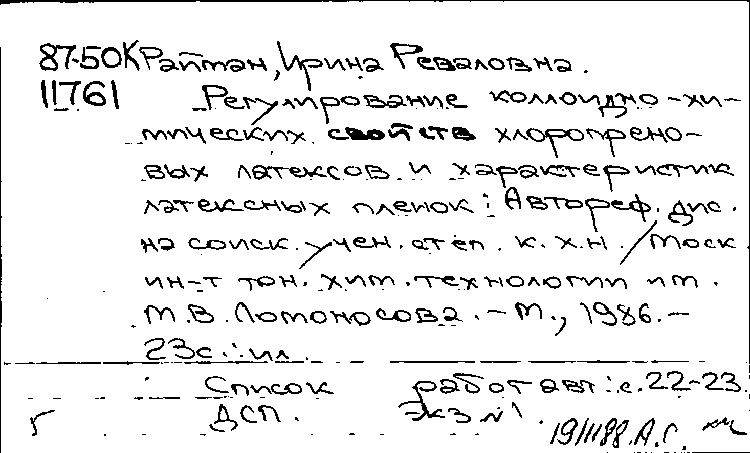 87-50К Райтман, Ирина Реваловна.
11761 Регулирование коллоидно-хи-
мических свойств хлоропрено-
вых латексов и характеристик
латексных пленок : Автореф. дис.
на соиск. учен. степ. к. х. н. / Моск.
ин-т тон. хим. технологии им.
М. В. Ломоносова. - М., 1986. -
23с. : ил.
Список работ авт.: с. 22-23.
ДСП. Экз. №1.
19/II 88. А. С.